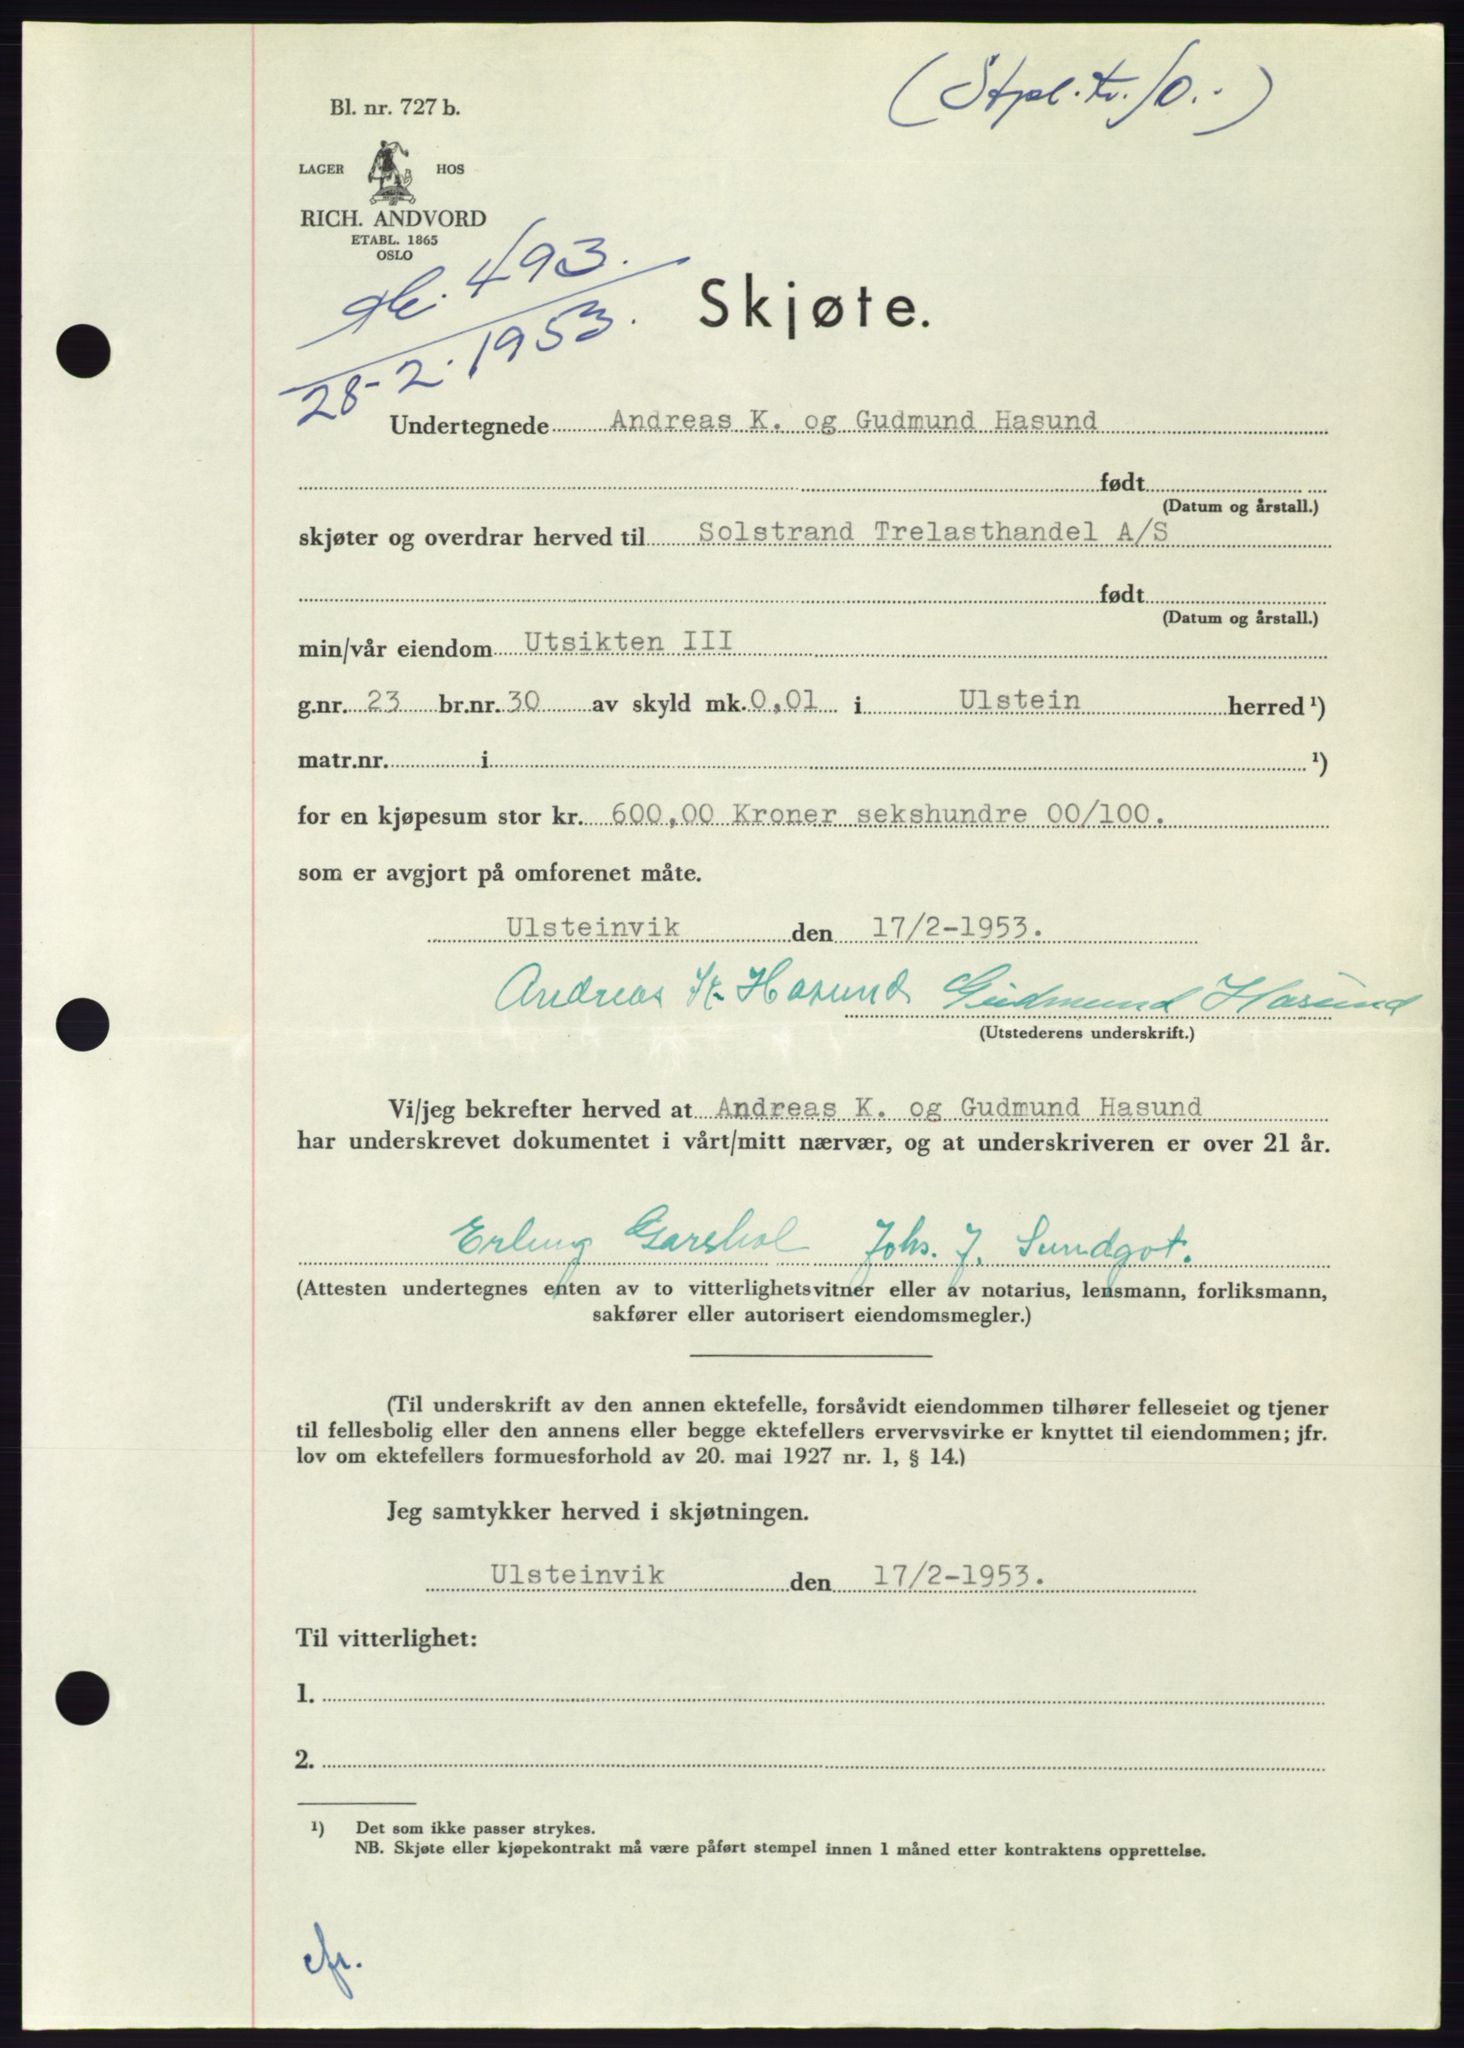 (Stpl. kr. 10.-)
Bl. nr. 727 b.
LAGER HOS
RICH. ANDVORD
ETABL. 1865
OSLO
493.
28-2.1953.
Skjøte.
Undertegnede Andreas K. og Gudmund Hasund
født
(Datum og årstall.)
skjøter og overdrar herved til Solstrand Trelasthandel A/S
født
(Datum og årstall.)
min/vår eiendom Utsikten III
g.nr. 23 br.nr. 30 av skyld mk. 0,01 i Ulstein herred ¹)
matr.nr. i ¹)
for en kjøpesum stor kr. 600,00 Kroner sekshundre 00/100.
som er avgjort på omforenet måte.
Ulsteinvik den 17/2-1953.
Andreas K. Hasund Gudmund Hasund
(Utstederens underskrift.)
Vi/jeg bekrefter herved at Andreas K. og Gudmund Hasund
har underskrevet dokumentet i vårt/mitt nærvær, og at underskriveren er over 21 år.
Erling Garshol Johs. J. Sundgot.
(Attesten undertegnes enten av to vitterlighetsvitner eller av notarius, lensmann, forliksmann,
sakfører eller autorisert eiendomsmegler.)
(Til underskrift av den annen ektefelle, forsåvidt eiendommen tilhører felleseiet og tjener
til fellesbolig eller den annens eller begge ektefellers ervervsvirke er knyttet til eiendommen; jfr.
lov om ektefellers formuesforhold av 20. mai 1927 nr. 1, § 14.)
Jeg samtykker herved i skjøtningen.
Ulsteinvik den 17/2-1953.
Til vitterlighet:
1.
2.
¹) Det som ikke passer strykes.
NB. Skjøte eller kjøpekontrakt må være påført stempel innen 1 måned etter kontraktens opprettelse.